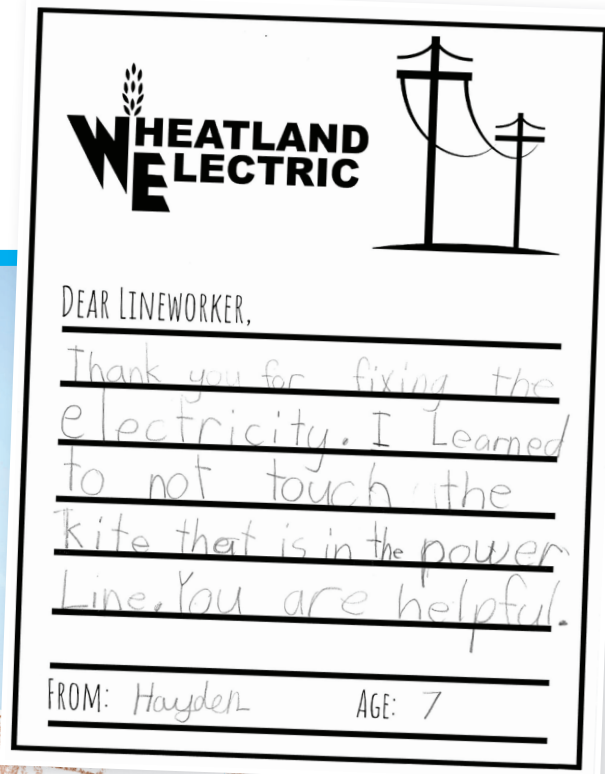 WHEATLAND
ELECTRIC
DEAR LINEWORKER,
Thank you for fixing the
electricity. I Learned
to not touch the
kite that is in the power
Line. You are helpful.
FROM: Hayden AGE: 7